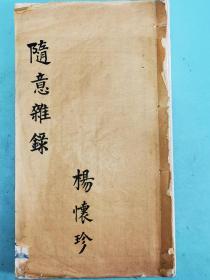 隨意雜錄
楊懷珍